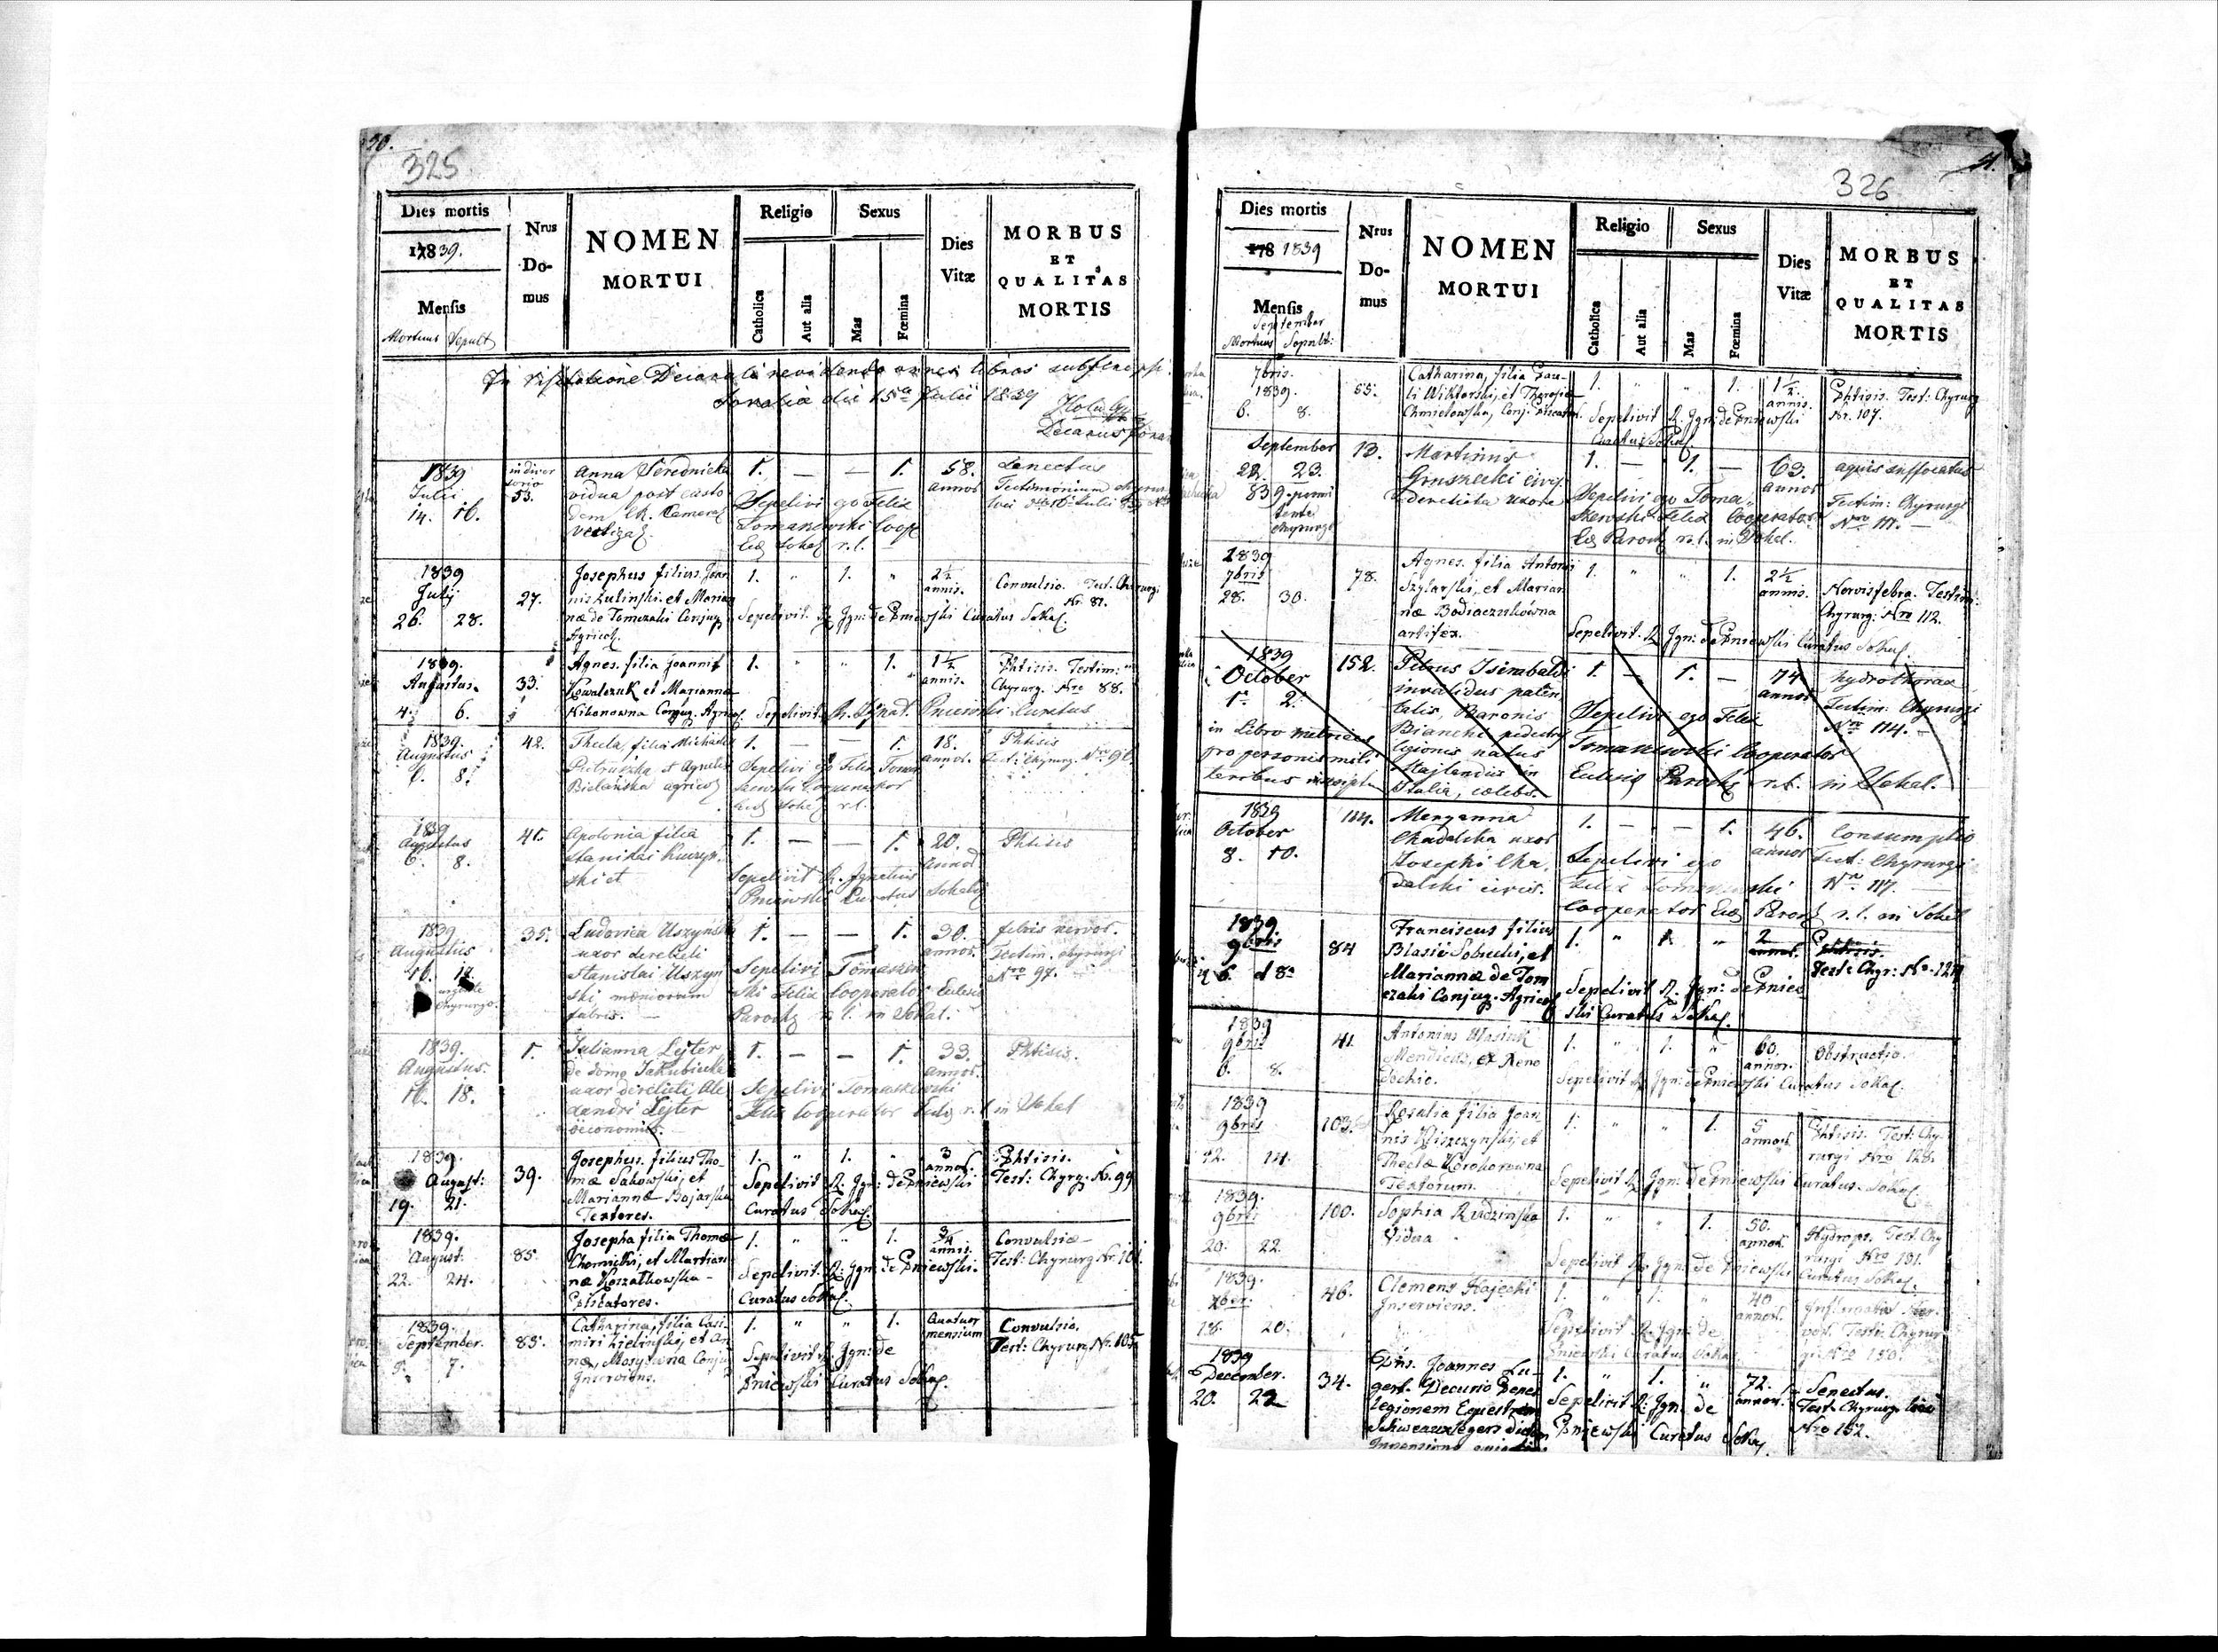 50.
325
Dies mortis
1839.
Mensis
Mortuus Sepult
Nrus
Do-
mus
NOMEN
MORTUI
Religio
Catholica
Aut alia
Sexus
Mas
Fœmina
Dies
Vitæ
MORBUS
ET
QUALITAS
MORTIS
In visitatione Decanali revidendo libros
die 15a Julii 1839
Decanus
1839
Julii
14. 16.
53.
Anna Serednicka
vidua post
1. — — 1.
58.
annos
Senectus
Testimonium
Sepelivi ego Felix
Tomaszewski Coop
r.l.
1839
Julij
26. 28.
27.
Josephus filius Joan
nis Zulinski et Marian
næ de Tomczaki Conjug
Agricol
1. " 1. "
2½
annis.
Convulsio. Test. Chyrurgi
Nr. 87.
Sepelivit R. Jgn: de Pniewski Curatus Sokal.
1839.
Augustus.
4. 6.
33.
Agnes filia Joannis
Kowalczuk et Marianna
Nikonowna Conjug. Agricol.
1. " " 1.
1½
annis.
Phtisis. Testim:
Chyrurg. Nro 88.
Sepelivit R. Ignat. Pniewski Curatus
1839.
Augustus
6. 8.
42.
Thecla filia Michaelis
Pietruszka et Agnetis
Bielanska agricol
1. — — 1.
18.
annos.
Phtisis
Sepelivi ego Felix Tomas
zewski Cooperator
r.l.
1839
Augustus
6. 8.
41.
Apolonia filia
Stanislai
ski et
1. — — 1.
20.
annos
Phtisis
Sepelivit R. Ignatius
Pniewski Curatus Sokal
1839
Augustus
16. 18
urgente
Chyrurgo.
35.
Ludovica Uszynska
uxor derelicti
Stanislai Uszyn
ski
fabris. —
1. — — 1.
30.
annos.
febris nervos.
Testim. chyrurgi
Nro 97.
Sepelivi Tomaszew
ski Felix Cooperator Eclesiæ
Paroch r.l. in Sokal.
1839.
Augustus.
16. 18.
1.
Julianna Lejter
de domo Jakubicka
uxor derelicti Ale
xandri Lejter
œconomi.
1. — — 1.
33.
annos.
Phtisis.
Sepelivi Tomaszewski
Felix Cooperator r.l. in Sokal
1839.
August:
19. 21.
39.
Josephus filius Tho-
mæ Sakowskj, et
Mariannæ Bojarska
Textores.
1. " 1. "
3
annos.
Phtisis.
Test: Chyrg. Nr. 99
Sepelivit R. Jgn: de Pniewski
Curatus Sokal.
1839.
August.
22. 24.
85.
Josepha filia Thomæ
Chornicki, et Marian
næ Koszatkowska
1. " " 1.
¾
annis.
Convulsiæ
Test: Chyrurg Nr. 101.
Sepelivit R. Jgn: de Pniewski.
Curatus Sokal.
1839.
September.
5. 7.
83.
Catharina, filia Casi-
miri Zielinskj, et An
næ, Conjug
Inserviens.
1. " " 1.
Quatuor
mensium
Convulsio.
Test: Chyrurg Nr. 105
Sepelivit R. Jgn: de
Pniewski Curatus Sokal.
51.
326
Dies mortis
178 1839
Mensis
September
Mortuus Sepult:
Nrus
Do-
mus
NOMEN
MORTUI
Religio
Catholica
Aut alia
Sexus
Mas
Fœmina
Dies
Vitæ
MORBUS
ET
QUALITAS
MORTIS
7bris.
1839.
6. 8.
55.
Catharina, filia Pau-
li Wiktorskj, et Theresia
Chmielowska, Conj.
1. " " 1.
1½
annis.
Phtisis. Test: Chyrurg
Nr. 107.
Sepelivit R. Jgn: de Pniewski
Curatus Sokal.
September
22. 23.
839
Chyrurgo
13.
Martinus
Gruszecki civis
derelicta uxore
1. — 1. —
63.
annos
aquis suffocatus
Testim: Chyrurgi
Nro 111. —
Sepelivi ego Toma,
szewski Felix Cooperator
Paroch r.l. in Sokal.
1839
7bris
28. 30.
78.
Agnes. filia Antoni
Szylarski, et Marian
næ Bodiaczukowna
artifex.
1. " " 1.
2½
annis.
Nervis febra. Testim:
Chyrurg: Nro 112.
Sepelivit R Jgn: de Pniewski Curatus Sokal.
1839
October
1. 2.
in Libro metrices
pro personis mili
taribus
152.
Petrus Isimbaldi
invalidus paten
talis, Baronis
Bianchi pedestr
legionis natus
Majlandus in
Italia, cælebs.
1. — 1. —
74
annos
hydrothorax
Testim: Chyrurgi
Nro 114. —
Sepelivi ego Felix
Tomaszewski Cooperator
Eclesiæ Paroch r.l. in Sokal.
1839
October
8. 10.
144.
Maryanna
Chadalska uxor
Josephi Cha,
dalski civis.
1. — — 1.
46.
annos
Consumptio
Test: Chyrurgi
Nro 117. —
Sepelivi ego
Felix Tomaszewski
Cooperator Paroch r.l. in Sokal
1839.
9bris
6. 8.
84
Franciscus filius
Blasii Sobeckj, et
Mariannæ de Tom
czaki Conjug. Agricol
1. " 1. "
2
annos.
Phtisis.
Test: Chyr: Nro. 124
Sepelivit R. Jgn: de Pniew
ski Curatus Sokal.
1839
9bris
6. 8.
41.
Antonius Wasiuk
Mendicus, ex Xeno
dochio.
1. " 1. "
60.
annos.
Obstructio.
Sepelivit R. Jgn: de Pniewski Curatus Sokal.
1839
9bris
12. 14.
103.
Rosalia filia Joan
nis Wiszczynskj, et
Theclæ Korohorowna
Textorum.
1. " " 1.
5
annos.
Phtisis. Test: Chy-
rurgi Nro 128.
Sepelivit R Jgn: de Pniewski Curatus Sokal.
1839.
9bris
20. 22.
100.
Sophia Rudzinska
Vidua
1. " " 1.
50.
annos.
Hydrops. Test: Chy
rurgi Nro 131.
Sepelivit R. Jgn: de Pniewski Curatus Sokal.
1839.
18. 20.
46.
Clemens Hajecki
Inserviens.
1. " 1. "
40
annos.
vos. Testi: Chyrur
gi Nro 150.
Sepelivit R. Jgn: de
Pniewski Curatus Sokal
1839
December.
20. 22
34.
Dns. Joannes Lu-
gert. Decurio Penes
legionem Equestrem
1. " 1. "
72.
annos.
Senectus.
Test: Chyrurg.
Nro 152.
Sepelivit R: Jgn: de
Pniewski Curatus Sokal.